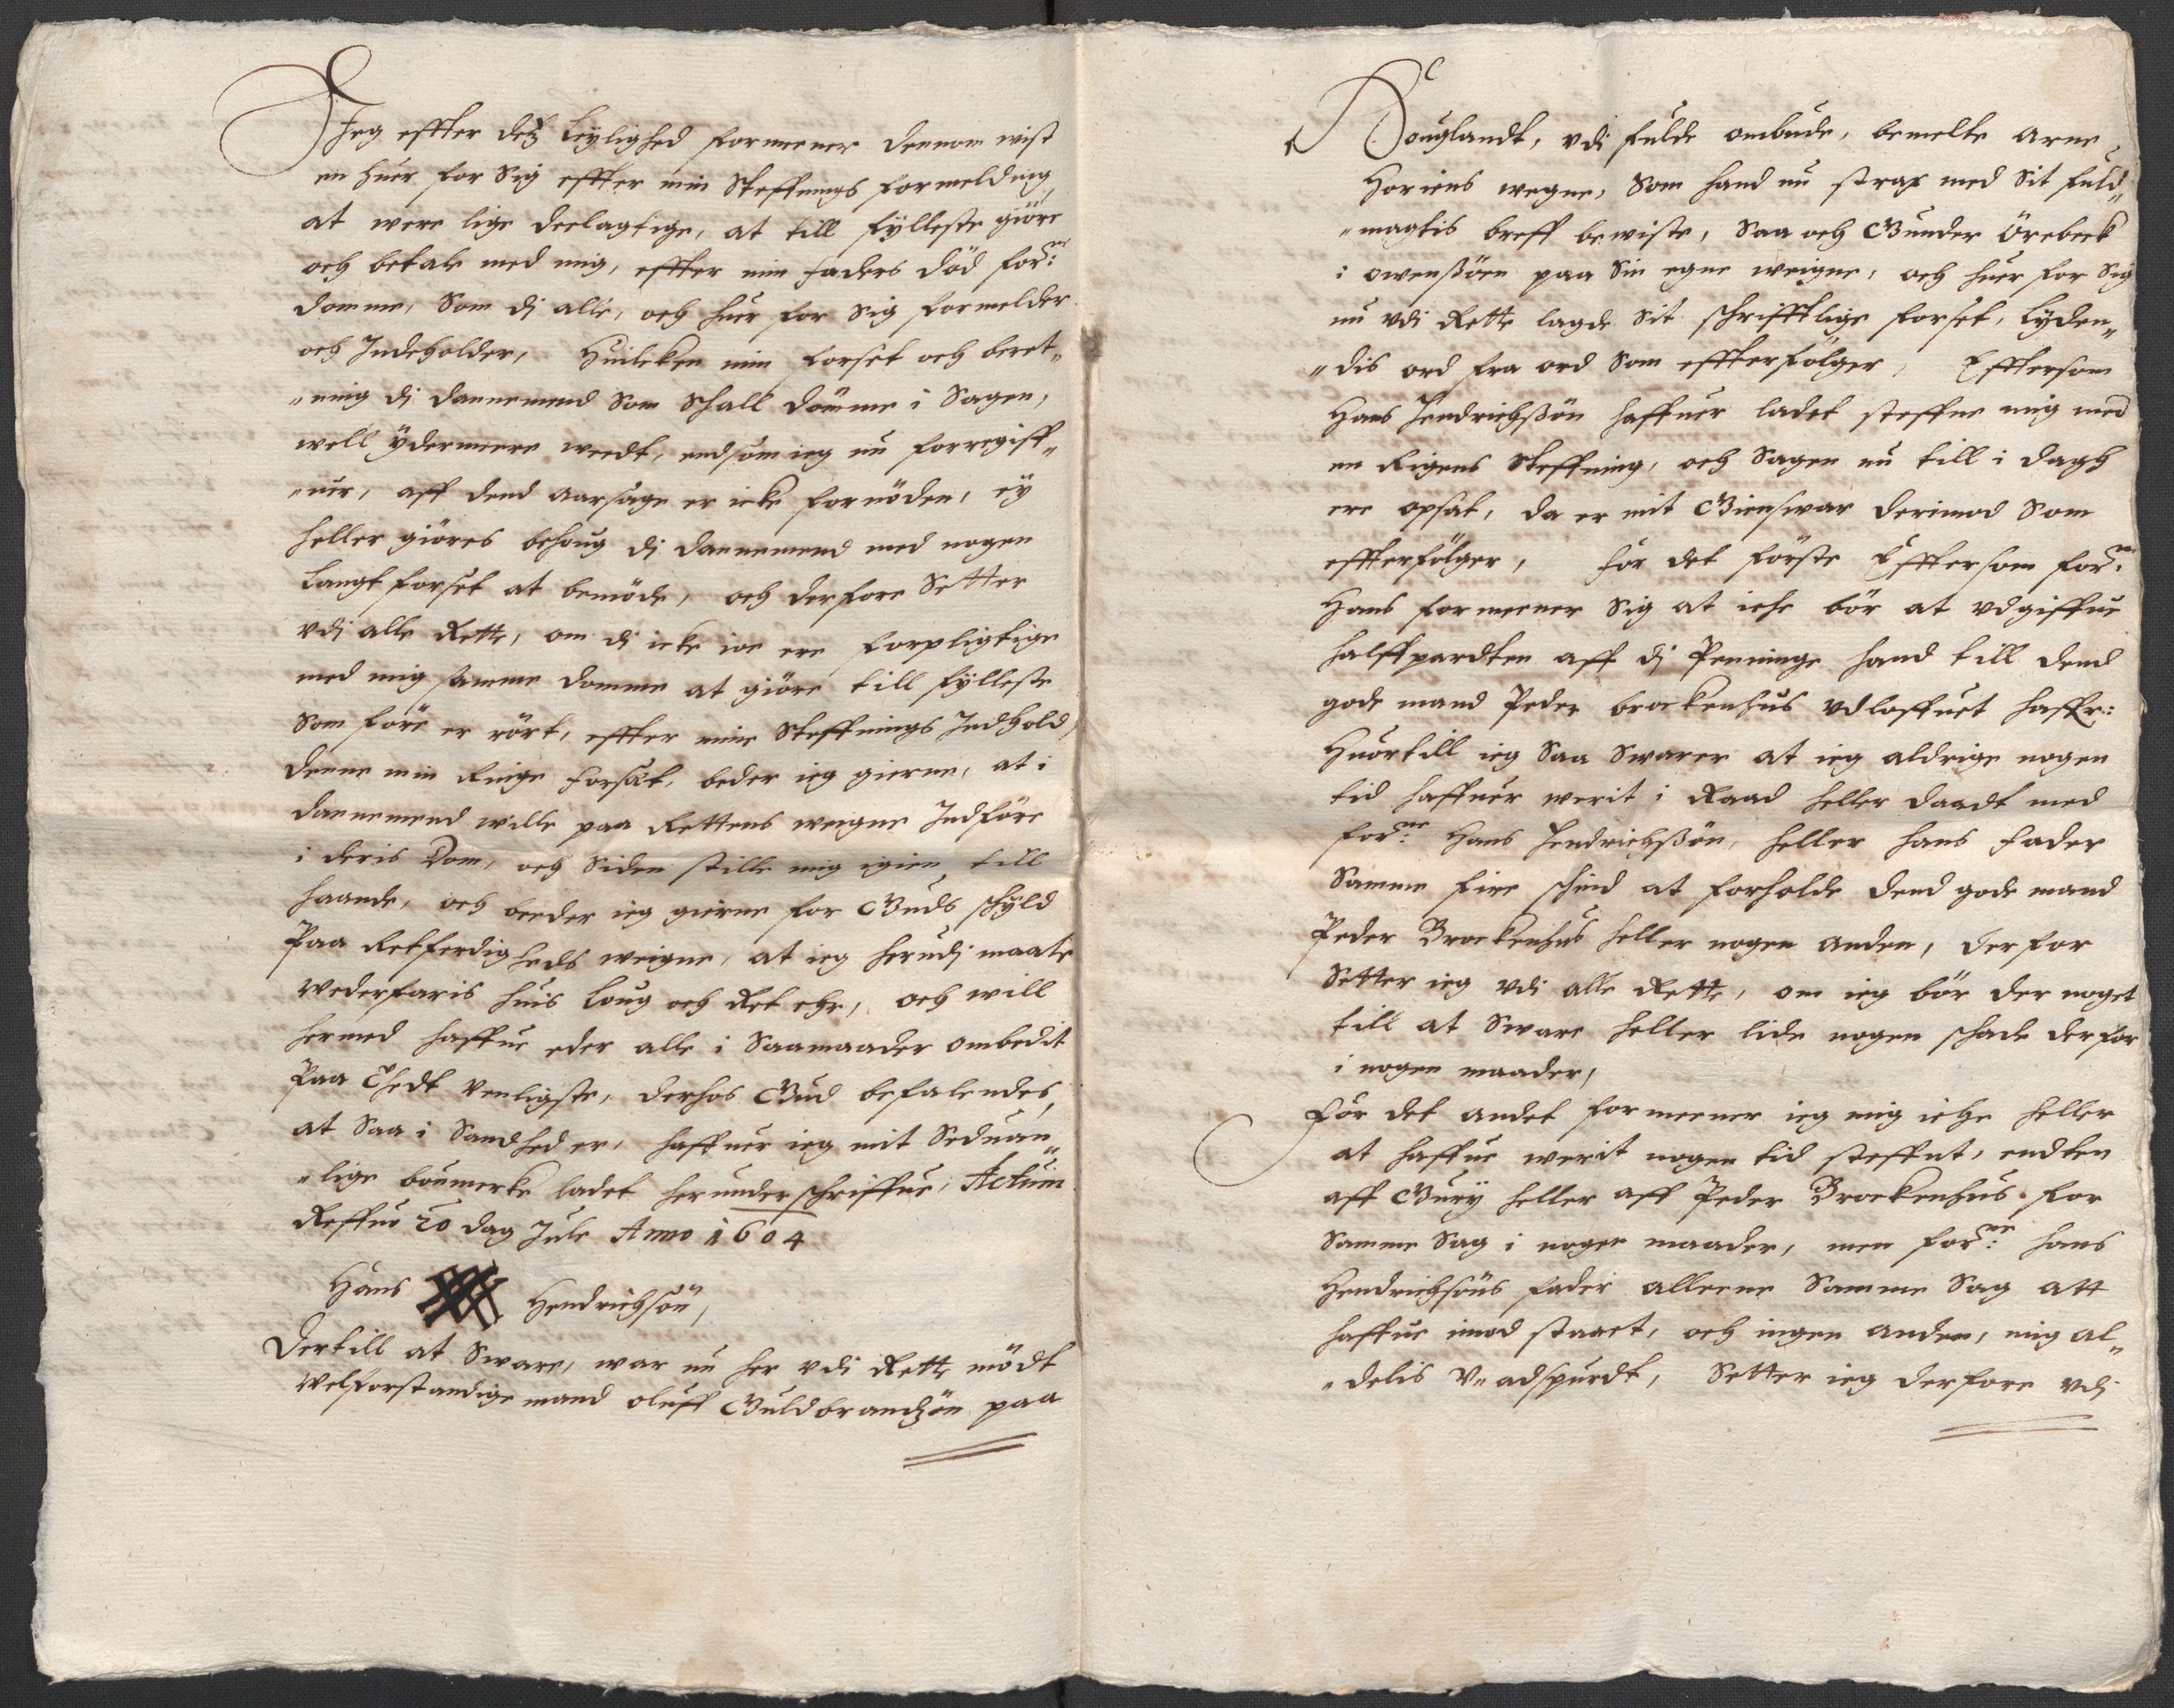 Jeg effter detz Leylighed formeener dennom wist
en huer for Sig effter min Steffnings formelding
at were lige deelagtige, at till fylleste giöre
och betale med mig, effter min faders död for:ne
domme, Som di alle, och huer for Sig formelder
och Indeholder, Huilcken min forset och beret„
„ning di dannemend Som Schall dömme i Sagen,
well ÿdermeere weedt, endsom ieg nu forregiff„
„uer, aff dend aarsage er icke fornöden, eÿ
heller giöres behoug di dannemend med nogen
Langt forset at bemöde, och derfore Setter
vdi alle Rette, om di icke ioe ere forpligtige
med mig samme domme at giöre till fylleste
Som före er rört, effter mine Steffnings Indhold,
denne min Ringe forsæt, beder ieg gierne, at i
dannemend wille paa Rettens weigne Indföre
i deris Dom, och Siden stille mig igien till
haande, och beeder ieg gierne for Guds schyld
Paa Retferdigheds weigne, at ieg herudi maate
wederfaris huis Loug och Ret ehr, och will
hermed haffue eder alle i Saamaader ombedit
Paa thedt venligste, derhos Gud befalendes,
at Saa i Sandhed er, haffuer ieg mit Seduan„
„lige boumerke ladet herunder schriffue, Actum
Reffno 20 dag Jule Anno 1604
Hans Hendrichsön,
Dertill at Sware, war nu her vdi Rette mödt
welforstandige mand oluff Guldbrandzön paa
Houglandt, vdi fulde ombude, bemelte Arne
Horiens wegne, Som hand nu strax med Sit fuld„
„magtis breff bewiste, Saa och Gunder Örebeck
i owensßöen paa Sin egne weigne, och huer for Sig
nu vdi Rette lagde Sit schrifftlige forset, Lyden„
„dis ord fra ord Som effterfölger, Efftersom
Hans Hendrichßön haffuer ladet steffne mig med
en Rigens Steffning, och Sagen nu till i dagh
ere opsat, da er mit Giensvar derimod Som
effterfölger, for det förste Efftersom for:ne
Hans formeener Sig at iche bör at vdgiffue
halffpardten aff di Penninge hand till dend
gode mand Peder brockenhus vdloffuet haffr:
Huortill ieg Saa Swarer at ieg aldrige nogen
tid haffuer werit i Raad heller daadt med
for:ne Hans Hendrichßön, heller hans fader
Samme fire schind at forholde dend gode mand
Peder Brockenhus heller nogen anden, derfor
Setter ieg vdi alle Rette, om ieg bör der noget
till at Sware heller lide nogen schade derfor
i nogen maader,
For det andet formeener ieg mig iche heller
at haffue werit nogen tid steffnt, endten
aff Gury heller aff Peder Brockenhus for
Samme Sag i nogen maader, men for:ne hans
Hendrichsöns fader alleene Samme Sag att
haffue imod staaet, och ingen anden, mig al„
„delis Vnadspurdt, Setter ieg derfore vdi